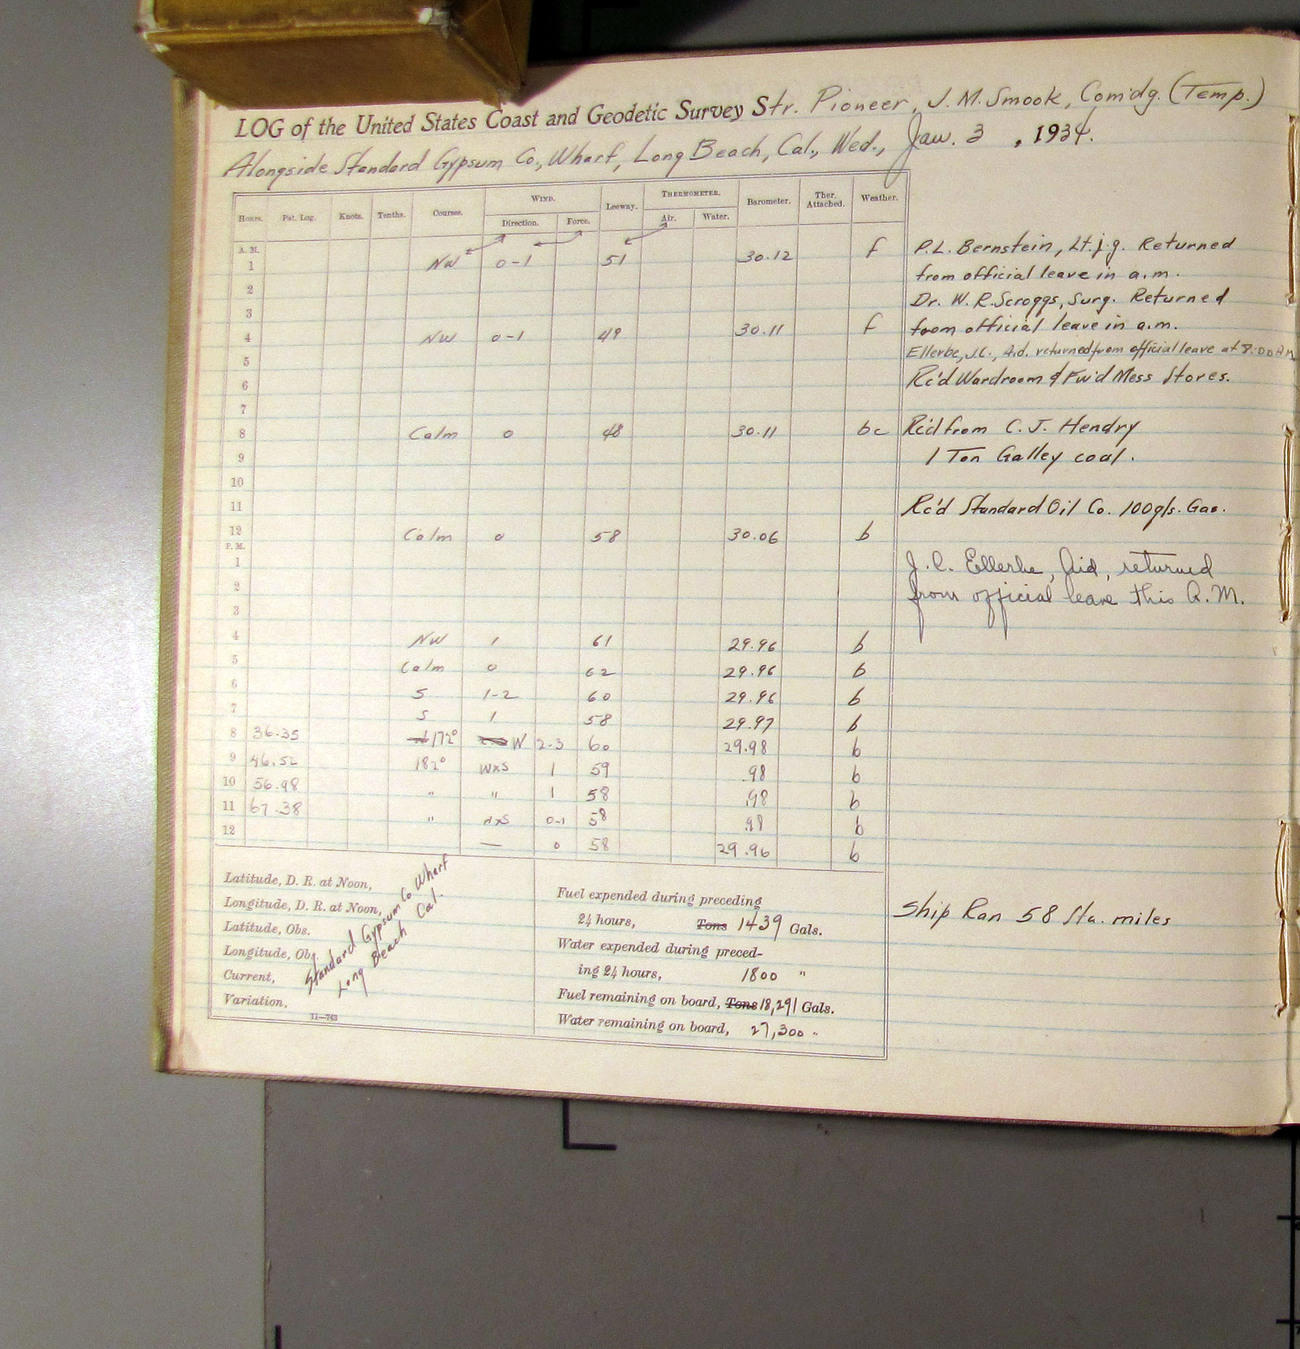 LOG of the United States Coast and Geodetic Survey Str. Pioneer, J. M. Smook, Comdg. (Temp.)
Alongside Standard Gypsum Co., Wharf, Long Beach, Cal., Wed., Jan. 3, 1934.
Hours. Pat. Log. Knots. Tenths. Courses. WIND. Leeway. THERMOMETER. Barometer. Ther. Attached. Weather.
Direction. Force. Air. Water.
A. M.
1 NW 0-1 51 30.12 f
2
3
4 NW 0-1 49 30.11 f
5
6
7
8 Calm 0 48 30.11 bc
9
10
11
12 Calm 0 58 30.06 b
P. M.
1
2
3
4 NW 1 61 29.96 b
5 Calm 0 62 29.96 b
6 S 1-2 60 29.96 b
7 S 1 58 29.97 b
8 36.35 172° W 2-3 60 29.98 b
9 46.52 182° WxS 1 59 .98 b
10 56.98 " " 1 58 .98 b
11 67.38 " 0-1 58 .98 b
12 — 0 58 29.96 b
P.L. Bernstein, Lt.j.g. Returned
from official leave in a.m.
Dr. W. R. Scroggs, Surg. Returned
from official leave in a.m.
Ellerbe, J.C., Aid. returned from official leave at 8:00 AM
Rc'd Wardroom & Fw'd Mess Stores.
Rc'd from C. J. Hendry
1 Ton Galley coal.
Rc'd Standard Oil Co. 100 gls. Gas.
J. C. Ellerbe, Aid, returned
from official leave this A.M.
Ship Ran 58 Sta. miles
Latitude, D. R. at Noon,
Longitude, D. R. at Noon,
Latitude, Obs.
Longitude, Obs.
Current,
Variation,
Standard Gypsum Co Wharf
Long Beach Cal.
11—763
Fuel expended during preceding
24 hours, Tons 1439 Gals.
Water expended during preced-
ing 24 hours, 1800 "
Fuel remaining on board, Tons 18,291 Gals.
Water remaining on board, 27,300 "